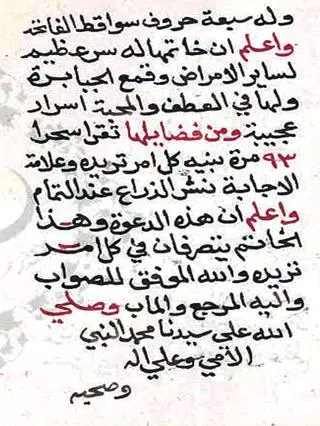 وله سبعة حروف سواقط الفاتحة
واعلم ان خاتمها له سر عظيم
لساير الامراض وقمع الجبابرة
ولها في العطف والمحبة اسرار
عجيبة ومن فضايلها تقرا سحرا
٩٣ مرة بنية كل امر تريده وعلامة
الاجابة نشر الذراع عند التمام
واعلم ان هذه الدعوة وهذا
الخاتم يتصرفان في كل امر
تريده والله الموفق للصواب
واليه المرجع والماب وصلي
الله على سيدنا محمد النبي
الأمي وعلي اله
وصحبه